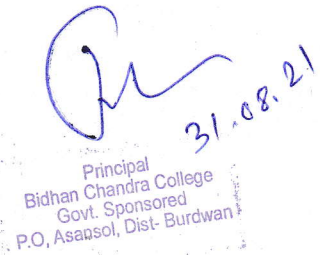 31.08.21
Principal
Bidhan Chandra College
Govt. Sponsored
P.O, Asansol, Dist- Burdwan